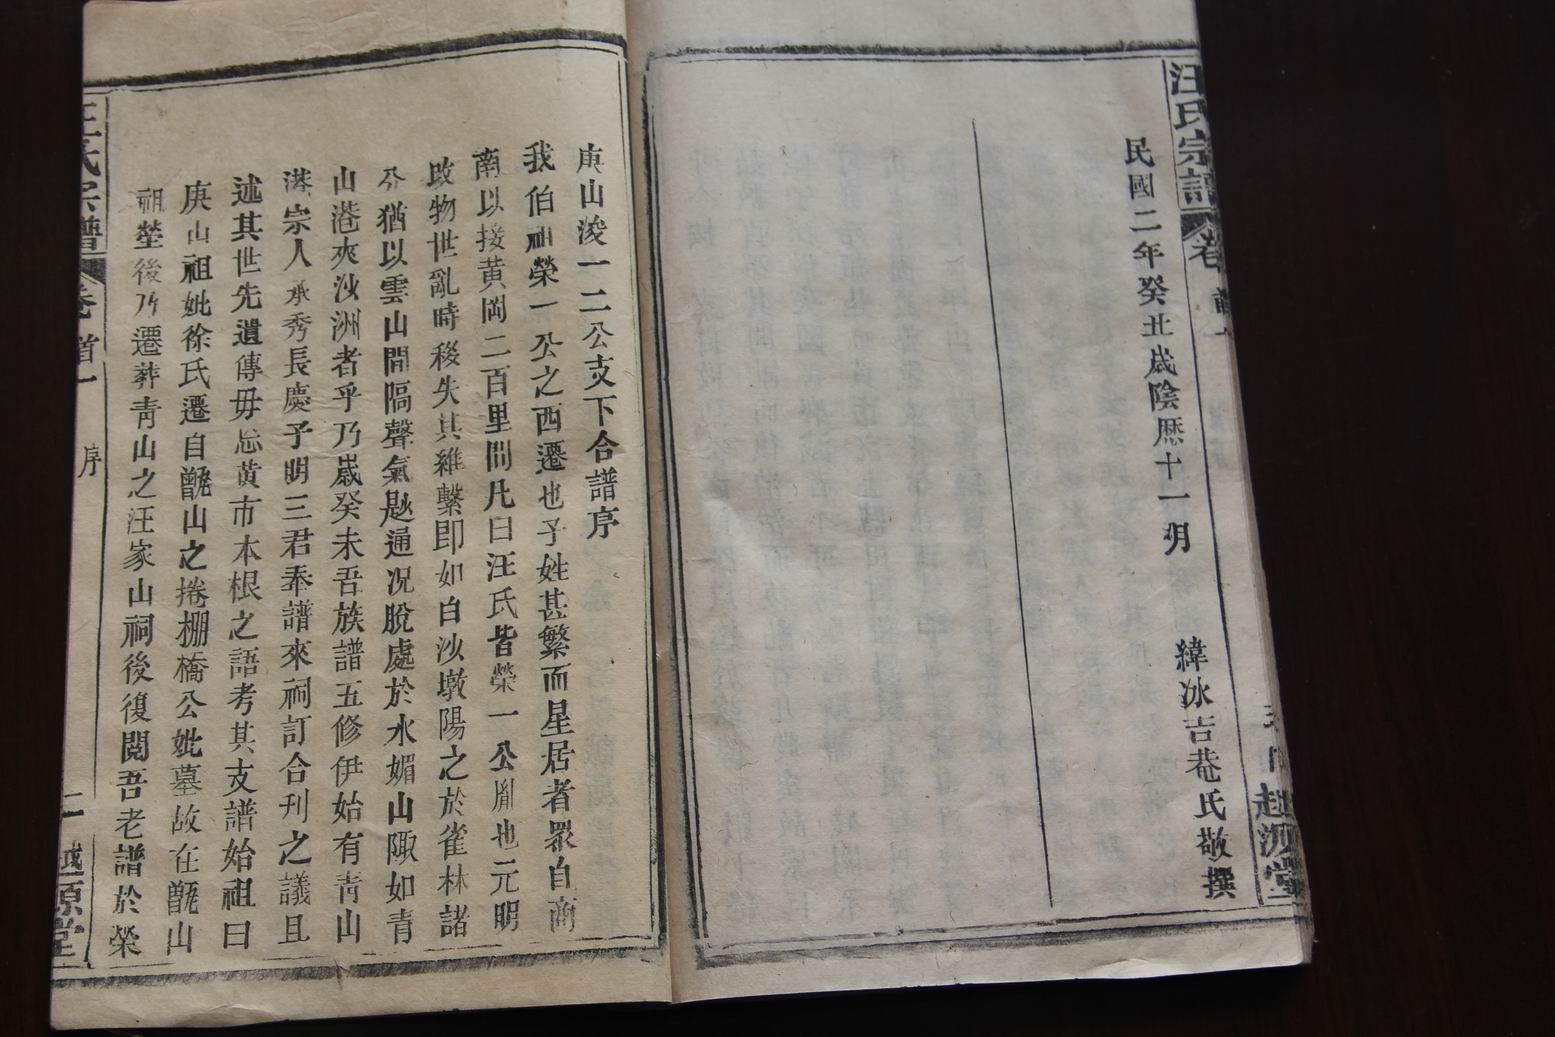 汪氏宗譜
卷
民國二年癸丑歲陰歷十一月
緯冰吉巷氏敬撰
越源堂
庚山浚一二公支下合譜序
我伯祖榮一公之西遷也子姓甚繁而星居者眾自商
南以接黃岡二百里間凡曰汪氏皆榮一公胤也元明
改物世亂時移失其維繫即如白沙墩陽之於雀林諸
分猶以雲山間隔聲氣尠通况脫處於水媚山陬如青
山港夾沙洲者乎乃歲癸未吾族譜五修伊始有青山
港宗人承秀長慶予明三君奉譜來祠訂合刊之議且
述其世先遺傳毋忘黃市本根之語考其支譜始祖曰
庚山祖妣徐氏遷自甑山之捲棚橋公妣墓故在甑山
祖塋後乃遷葬青山之汪家山祠後復閱吾老譜於榮
汪氏宗譜
卷首一
序
二
越源堂